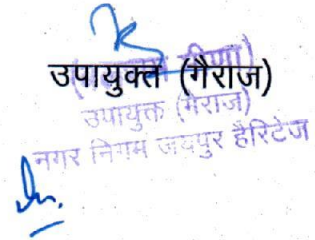 उपायुक्त (गैराज)
उपायुक्त (गैराज)
नगर निगम जयपुर हैरिटेज